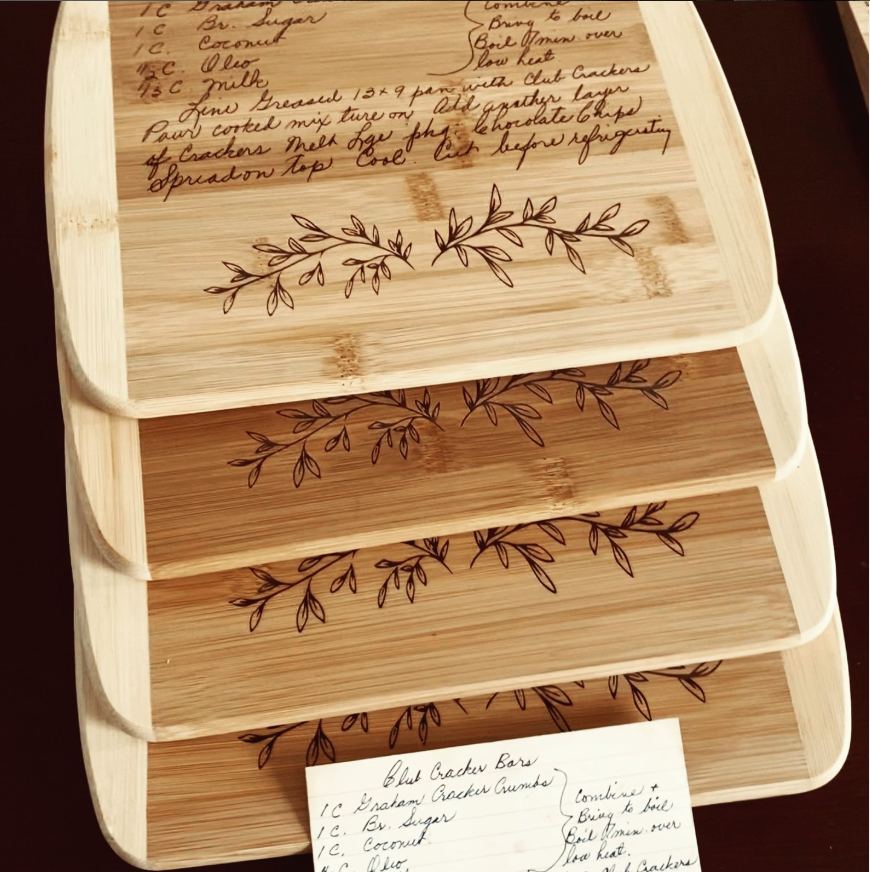 1 C Graham
1 C Br. Sugar
1 C. Coconut
1/2 C. Oleo
1/3 C Milk
Combine
Bring to boil
Boil 7 min. over
low heat
Line Greased 13x9 pan with Club Crackers
Pour cooked mix ture on Add another layer
of Crackers Melt Lge pkg. Chocolate Chips
Spread on top Cool. Cut before refrigerating
Club Cracker Bars
1 C Graham Cracker Crumbs
1 C. Br. Sugar
1 C. Coconut
C. Oleo,
Combine +
Bring to boil
Boil 7 min. over
low heat.
Club Crackers